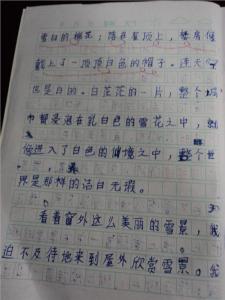 雪白的棉花；落在屋顶上，整房像
戴上了一顶顶白色的帽子。连天空
也是白的。白茫茫的一片，整个城
市都浸泡在乳白色的雪花之中，好
像进入了白色的仙境之中，整个世
界是那样的洁白无瑕。
看着窗外这么美丽的雪景，我
迫不及待地来到屋外欣赏雪景。我